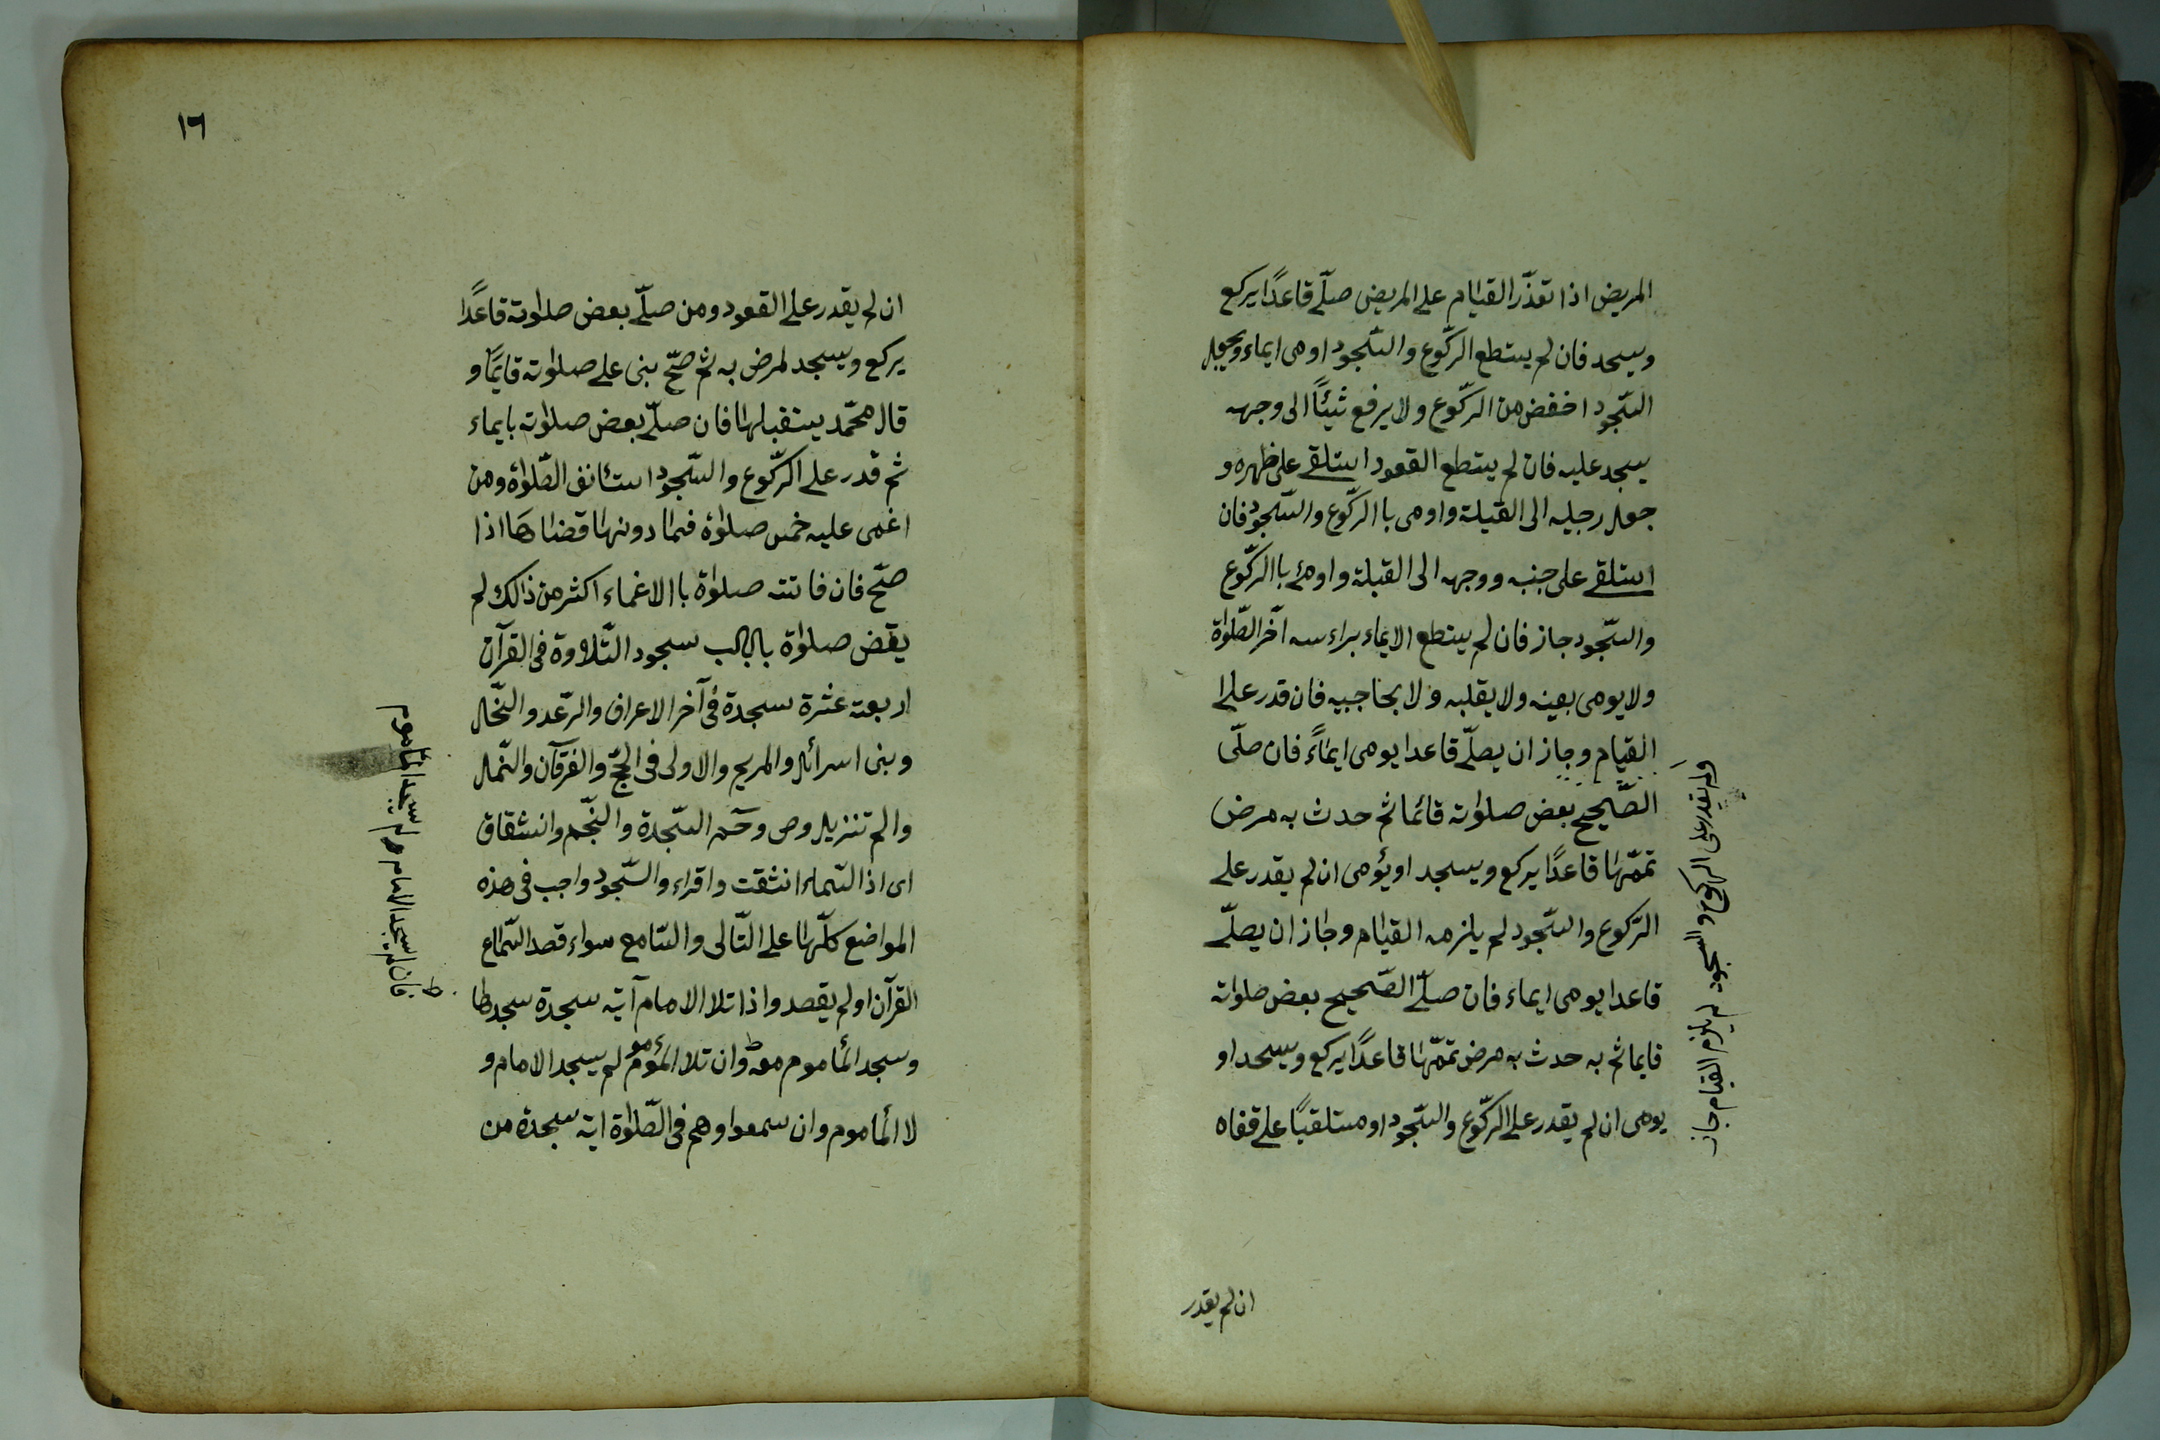 المريض اذا تعذّر القيام على المريض صلّے قاعدًا يركع
ويسجد فان لم يستطع الركّوع والسّجود اومى ايماء ويجعل
السّجود اخفض من الركّوع ولا يرفع شيئًا الى وجهه
يسجد عليه فان لم يستطع القعود استلقے على ظهره و
جعل رجليه الى القبلة واومى باالركّوع والسّجود فان
استلقے على جنبه ووجهه الى القبلة واومئے باالركّوع
والسّجود جاز فان لم يستطع الايماء براءسه آخر الصّلوٰة
ولا يومى بعينه ولا يقلبه ولا بحاجبيه فان قدر على
القيام وجاز ان يصلّے قاعدا يومى ايماءً فان صلّى
الصّحيح بعض صلوٰته قائما ثم حدث به مرض
تممّها قاعدًا يركع ويسجد اويؤمى ان لم يقدر على
الرّكوع والسّجود لم يلزمه القيام وجاز ان يصلّے
قاعدا يومى ايماء فان صلّے الصّحيح بعض صلوٰته
قايما ثم به حدث به مرض تممّها قاعدًا يركع ويسجد او
يومى ان لم يقدر على الركّوع والسّجود او مستلقيًا على قفاه
ولم يقدر على الركوع والسجود لم يلزم القيام جاز
ان لم يقدر
١٦
ان لم يقدر على القعود ومن صلّے بعض صلوٰته قاعدًا
يركع ويسجد لمرض به ثم صحّ بنى على صلوٰته قايمًا و
قال محمّد يستقبلها فان صلّے بعض صلوٰته بايماء
ثم قدر على الركّوع والسّجود استئانف الصّلوٰة ومن
اغمى عليه خمس صلوٰة فما دونها قضاها اذا
صحّ فان فاتته صلوٰة باالاغماء اكثر من ذالك لم
يقض صلوٰة باب سجود التّلاوة فى القرآن
اربعته عشرة سجدة فى آخر الاعراف والرّعد والنّحل
وبنى اسرائل والمريم والاولى فى الحجّ والفرقآن والنّمل
والم تنزيل وص وحم السّجدة والنّجم وانشقاق
اى اذا السّماء انشقت واقراء والسّجود واجب فى هذه
المواضع كلّها على التّالى والسّامع سواء قصد السّماع
القرآن اولم يقصد واذا تلا الامام آيته سجدة سجدها
وسجد المأاموم معه وان تلا المؤموم لم يسجد الامام و
لا المأاموم وان سمعوا وهم فى الصّلوٰة ايته سجدة من
فان لم يسجد الامام لم يسجد الماموم